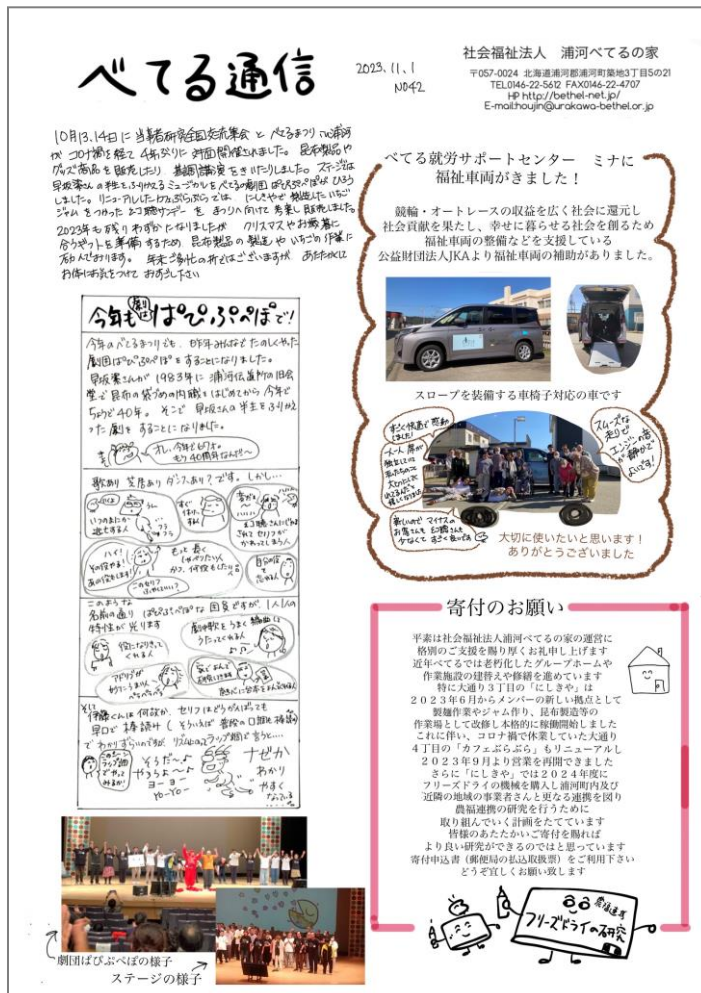 べてる通信
2023.11.1
NO42
社会福祉法人 浦河べてるの家
〒057-0024 北海道浦河郡浦河町築地3丁目5の21
TEL0146-22-5612 FAX0146-22-4707
HP http://bethel-net.jp/
E-mail:houjin@urakawa-bethel.or.jp
10月13.14日に当事者研究全国交流集会とべてるまつりin浦河
がコロナ禍を経て4年ぶりに対面開催されました。昆布製品や
グッズ商品を販売したり 基調講演をきいたりしました。ステージでは
早坂潔さんの半生をふりかえるミュージカルをべてるの劇団ぱぴぷぺぽがひろう
しました。リニューアルしたカフェぶらぶらでは、にしきやで製造したいちご
ジャムをつかった幻聴サンデーを まつりへ向けて考案し販売しました。
2023年も残りわずかとなりましたが クリスマスやお歳暮に
合うギフトを準備するため 昆布製品の製造やいちごの作業に
励んでおります。年末ご多忙の折ではございますが あたたかくして
お体にお気をつけておすごし下さい
今年も劇はぱぴぷぺぽで!
今年のべてるまつりでも、昨年みんなでたのしくやった
劇団ぱぴぷぺぽをすることになりました。
早坂潔さんが1983年に浦河伝道所の旧会
堂で昆布の袋づめの内職をはじめてから今年で
ちょうど40年。そこで早坂さんの半生をふりかえ
った劇をすることになりました。
オレ、今年で67才。
もう40周年なんだ〜
歌あり 笑いあり ダンスあり?です。しかし…
いつのまにか
逃亡する人
幻聴さんにじゃま
されてセリフが
かわってしまう人
ハイ!
その役やる!
あの役もします!
もっと長く
しゃべりたい人
かつ、何役もしたい人
このセリフ
ふやしていい?
自分の役を
忘れる人
このような
名前の通り ぱぴぷぺぽな団員ですが、1人1人の
特性が光ります
役になりきって
くれる人
劇中歌をうまく編曲し
うたってくれる人
アドリブが
妙にうまい人
ぺちゃぺちゃ
そして
伊藤くんは何故か、セリフはどうがんばっても
早口で棒読み(
でわかりずらいのですが、リズムにのってラップ調で言うと…
このセリフ
ラップ調
でやって
みるか!
そうだ〜♪
やっちょ〜♪
ヨーヨー
YO-YO-
ナゼか
わかり
やすく
なっている
劇団ぱぴぷぺぽの様子
ステージの様子
べてる就労サポートセンター ミナに
福祉車両がきました!
競輪・オートレースの収益を広く社会に還元し
社会貢献を果たし、幸せに暮らせる社会を創るため
福祉車両の整備などを支援している
公益財団法人JKAより福祉車両の補助がありました。
スロープを装備する車椅子対応の車です
すごく快適で感動
しました!
一人一席が
独立していて
私たちのこと
大切にしてく
れてるんだと
嬉しくなりました
スムーズな
走りで
エンジンの音
が静かで
よいです!
新しいので マイナスの
お客さんも幻聴さんも
少なくて すごく良いです
大切に使いたいと思います!
ありがとうございました
寄付のお願い
平素は社会福祉法人浦河べてるの家の運営に
格別のご支援を賜り厚くお礼申し上げます
近年べてるでは老朽化したグループホームや
作業施設の建替えや修繕を進めています
特に大通り3丁目の「にしきや」は
2023年6月からメンバーの新しい拠点として
製麺作業やジャム作り、昆布製造等の
作業場として改修し本格的に稼働開始しました
これに伴い、コロナ禍で休業していた大通り
4丁目の「カフェぶらぶら」もリニューアルし
2023年9月より営業を再開できました
さらに「にしきや」では2024年度に
フリーズドライの機械を購入し浦河町内及び
近隣の地域の事業者さんと更なる連携を図り
農福連携の研究を行うために
取り組んでいく計画をたてています
皆様のあたたかいご寄付を賜れば
より良い研究ができるのではと思っています
寄付申込書(郵便局の払込取扱票)をご利用下さい
どうぞ宜しくお願い致します
農福連携
フリーズドライの研究